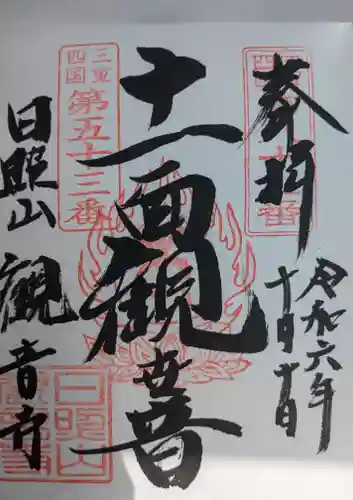 奉拝
令和六年
十月十日
十一面観世音
三重
四国
第五十三番
日照山
観音寺